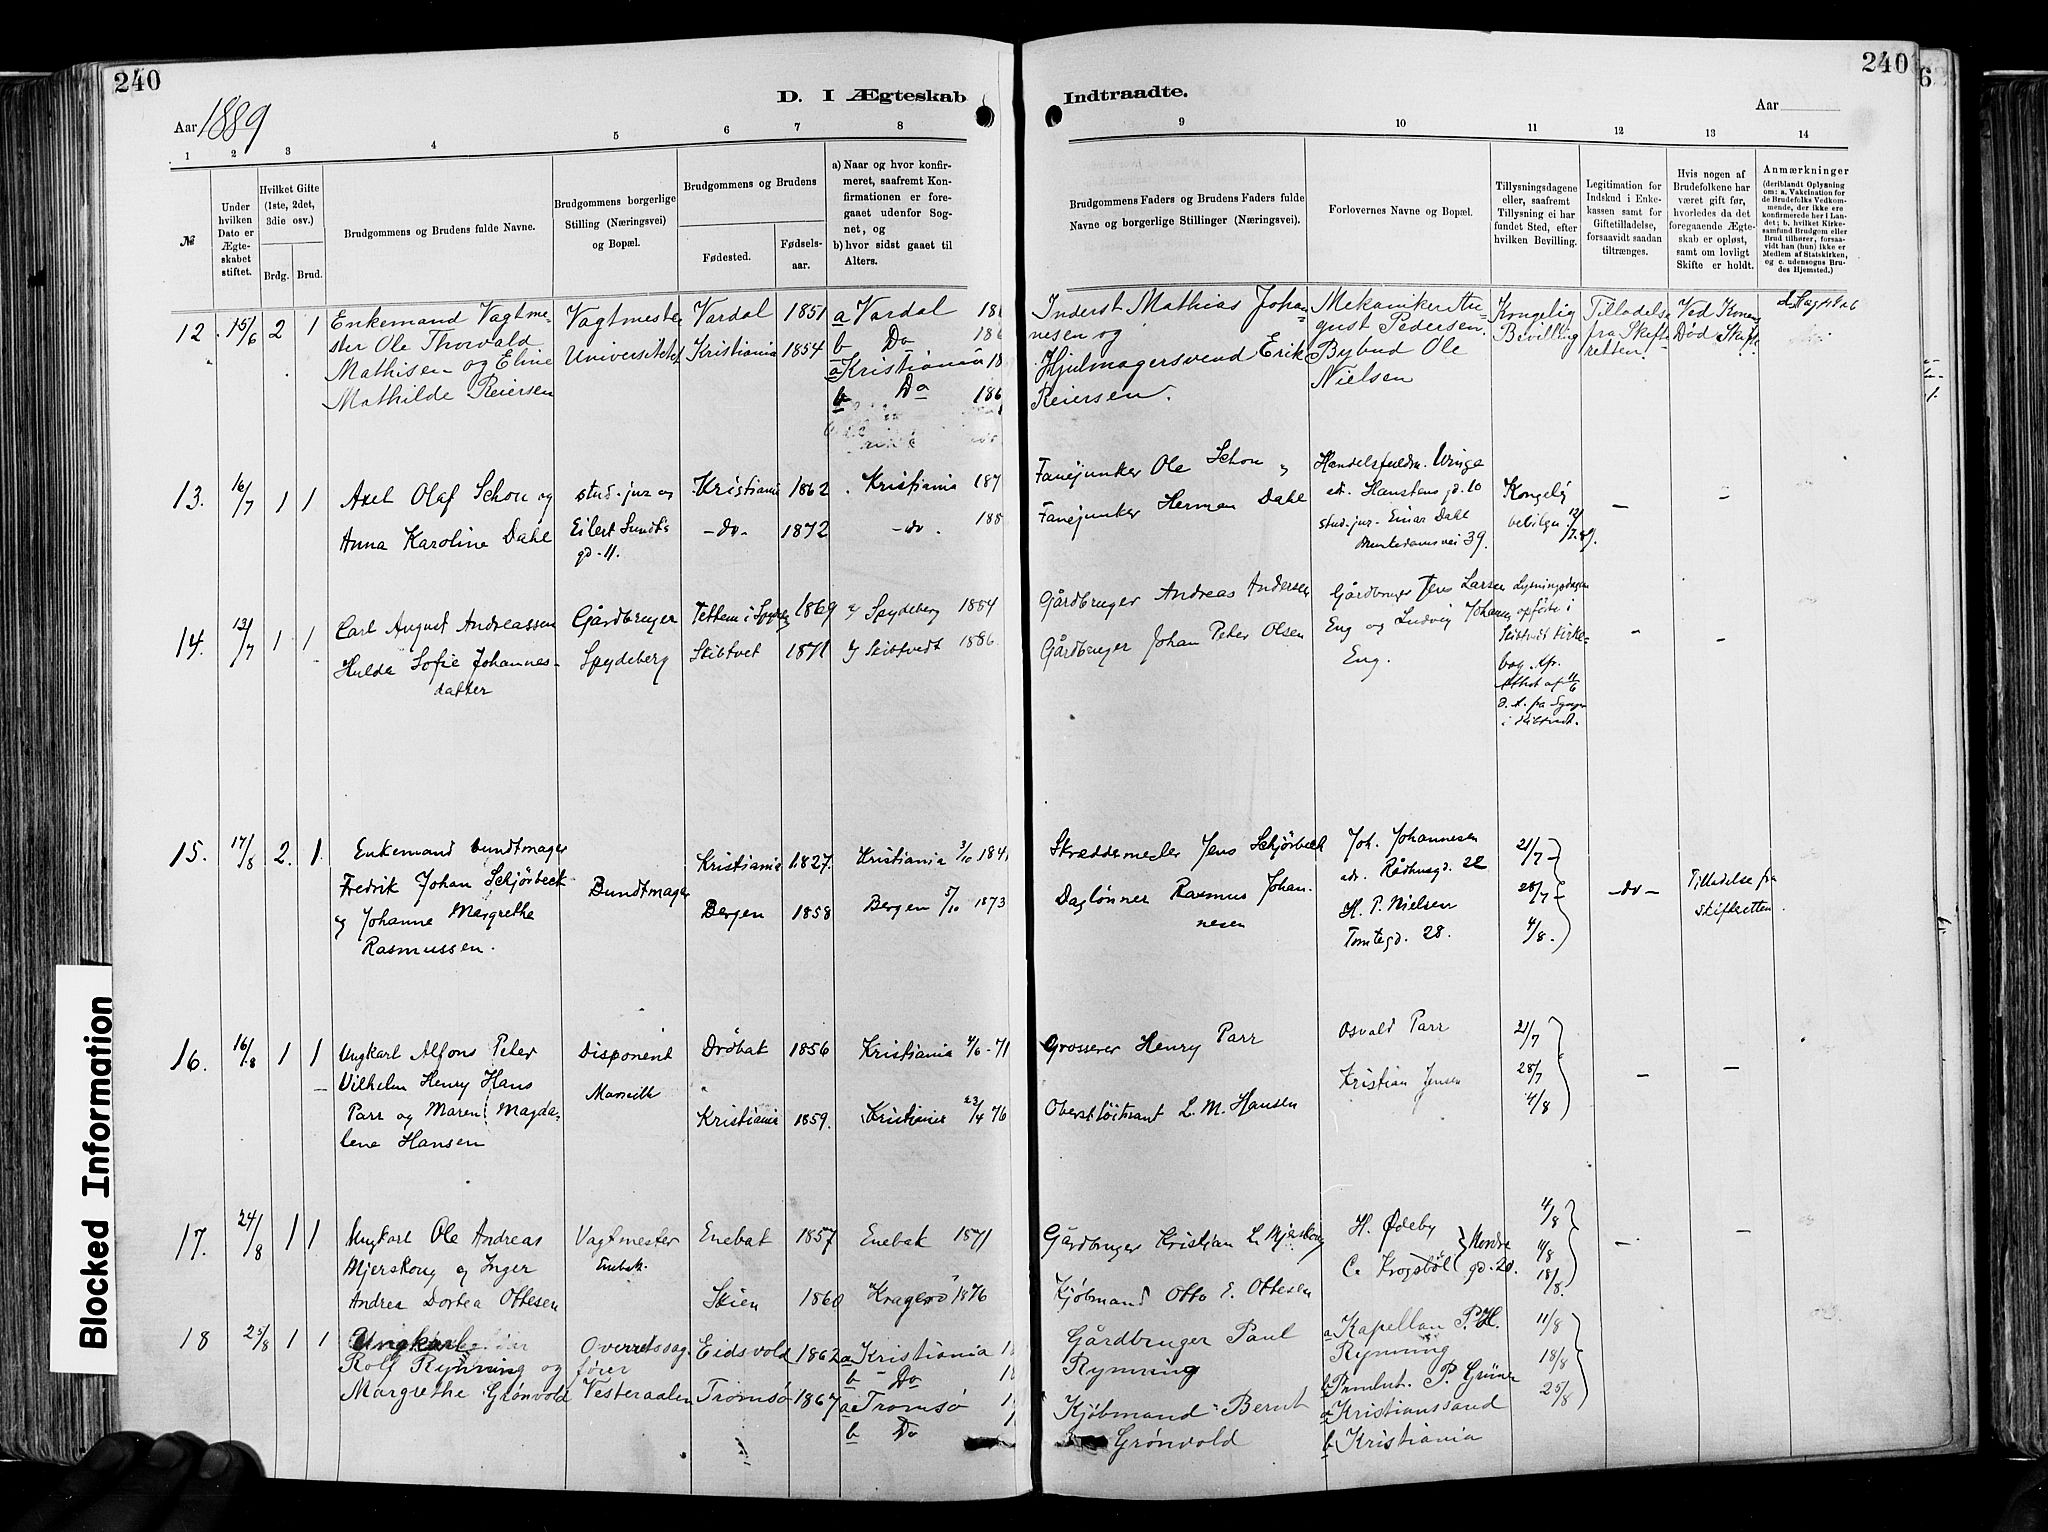 240
D. I Ægteskab
Indtraadte.
240
6
Aar 1889
Aar
1 2 3 4 5 6 7 8
9 10 11 12 13 14
№
Under hvilken Dato er Ægteskabet stiftet.
Hvilket Gifte (1ste, 2det, 3die osv.)
Brdg. Brud.
Brudgommens og Brudens fulde Navne.
Brudgommens borgerlige Stilling (Næringsvei) og Bopæl.
Brudgommens og Brudens
Fødested.
Fødselsaar.
a) Naar og hvor konfirmeret, saafremt Konfirmationen er foregaaet udenfor Sognet, og
b) hvor sidst gaaet til Alters.
Brudgommens Faders og Brudens Faders fulde Navne og borgerlige Stillinger (Næringsvei).
Forlovernes Navne og Bopæl.
Tillysningsdagene eller, saafremt Tillysning ei har fundet Sted, efter hvilken Bevilling.
Legitimation for Indskud i Enkekassen samt for Giftetilladelse, forsaavidt saadan tiltrænges.
Hvis nogen af Brudefolkene har været gift før, hvorledes da det foregaaende Ægteskab er opløst, samt om lovligt Skifte er holdt.
Anmærkninger
(deriblandt Oplysning om: a. Vakcination for de Brudefolks Vedkommende, der ikke ere konfirmerede her i Landet; b. hvilket Kirkesamfund Brudgom eller Brud tilhører, forsaavidt han (hun) ikke er Medlem af Statskirken, og c. udensogns Brudes Hjemsted.)
12. 15/6 2 1
Enkemand Vagtme-
ster Ole Thorvald
Mathisen og Eline
Mathilde Reiersen
Vagtmester
Universitetet
Vardal 1851
Kristiania 1854
a Vardal
b Do
a Kristiania
b Do
Inderst Mathias Johan-
nesen og
Hjulmagersvend Erik
Reiersen.
Mekaniker Au-
gust Pedersen.
Bybud Ole
Nielsen
Kongelig
Bevilling
Tilladelse
fra Skifte-
retten.
Ved Konens
Død Skifte
13. 16/7 1 1
Axel Olaf Schou og
Anna Karoline Dahl
stud. jur og
Eilert Sundts
gd. 11.
Kristiania 1862
-do- 1872
Kristiania 187
-do. 188
Fanejunker Ole Schou
Fanejunker Herman Dahl
adr. Hanstens gd. 10
stud. jur. Einar Dahl
39.
Kongelig
12/7 89.
14. 13/7 1 1
Carl August Andreassen
Hulda Sofie Johannes-
datter
Gårdbruger
Spydeberg
1869
Skibtvet 1871
Spydeberg 1884
Skibtvedt 1886
Gårdbruger Andreas Andersen
Gårdbruger Johan Peter Olsen
Gårdbruger Jens Larsen
Eng og Ludvig
Eng.
Lysningsdagene
opførte i
Skibtvedt Kirke-
bog
15. 17/8 2. 1.
Enkemand bundtmager
Fredrik Johan Schjörbeck
og Johanne Margrethe
Rasmussen.
Bundtmager
Kristiania 1827.
Bergen 1858
Kristiania 3/10 1841
Bergen 5/10 1873
Jens Schjörbeck
Daglönner Rasmus Johan-
nesen
Joh. Johannesen
adr. Rådhusgd. 22
H. P. Nielsen
Tomtegd. 28.
21/7
28/7
4/8.
-do-
Tilladelse fra
skifteretten.
16. 16/8 1 1
Ungkarl Alfons Peter
Vilhelm Henry Hans
Parr og Maren Magda-
lena Hansen
Disponent
Dröbak 1856
Kristiania 1859.
Kristiania
Kristiania 23/4 76
Grosserer Henry Parr
Oberstlöitnant L. M. Hansen
Osvald Parr
Kristian Jensen
21/7
28/7
4/8
17. 24/8 1 1
Ungkarl Ole Andreas
Mjerskoug og Inger
Andrea Dortea Ottesen
Vagtmester
Enebak.
Enebak 1857
Skien 1860
Enebak 1871
Kragerö 1876
Gårdbruger Kristian L. Mjerskoug
Kjöbmand Otto E. Ottesen
H. Ødeby
C. Krogsböl
Nordre
gd. 20.
4/8
11/8
18/8.
18 25/8 1 1
Ungkarl
Rolf Rynning og
Margrethe Grønvold
Overretssag-
fører
Vesteraalen
Eidsvold 1862
Tromsø 1867
a Kristiania
b Do
a Tromsø
b Do
Gårdbruger Paul
Rynning
Kjøbmand Bernt
Grønvold
a Kapellan P. H.
Rynning
a Kristianssand
b Kristiania
11/8
18/8
25/8
Blocked Information